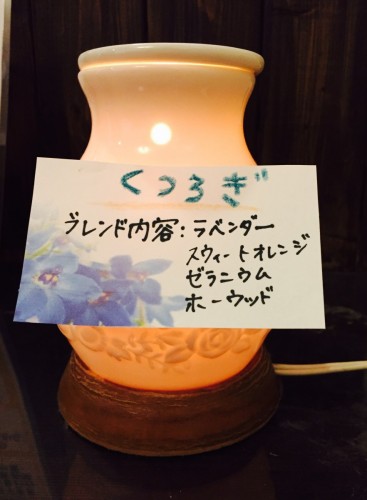 くつろぎ
ブレンド内容:ラベンダー
スウィートオレンジ
ゼラニウム
ホーウッド